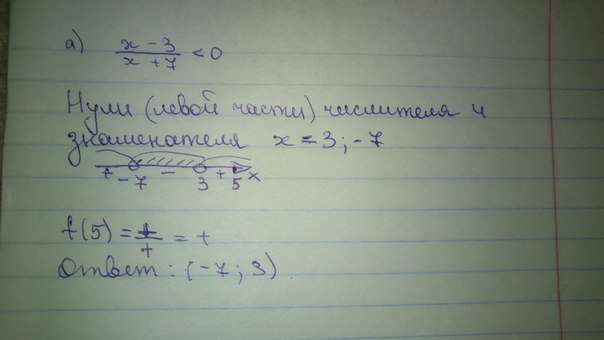 а) x - 3 / x + 7 < 0
Нули (левой части) числителя и
знаменателя x = 3; -7
+ -7 - 3 + 5 x
f(5) = + / + = +
Ответ: (-7; 3)